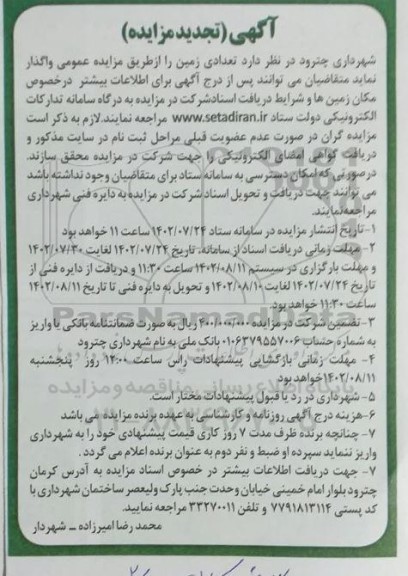 آگهی (تجدیدمزایده)
شهرداری چترود در نظر دارد تعدادی زمین را ازطریق مزایده عمومی واگذار
نماید متقاضیان می توانند پس از درج آگهی برای اطلاعات بیشتر درخصوص
مکان زمین ها و شرایط دریافت اسنادشرکت در مزایده به درگاه سامانه تدارکات
الکترونیکی دولت ستاد www.setadiran.ir مراجعه نمایند.لازم به ذکر است
مزایده گران در صورت عدم عضویت قبلی مراحل ثبت نام در سایت مذکور و
دریافت گواهی امضای الکترونیکی را جهت شرکت در مزایده محقق سازند.
درصورتی که امکان دسترسی به سامانه ستاد برای متقاضیان وجود نداشته باشد
می توانند جهت دریافت و تحویل اسناد شرکت در مزایده به دایره فنی شهرداری
مراجعه نمایند.
۱-تاریخ انتشار مزایده در سامانه ستاد ۱۴۰۲/۰۷/۲۴ ساعت ۱۱ خواهد بود
۲- مهلت زمانی دریافت اسناد از سامانه، تاریخ ۱۴۰۲/۰۷/۲۴ لغایت ۱۴۰۲/۰۷/۳۰
و مهلت بارگزاری در سیستم ۱۴۰۲/۰۸/۱۱ ساعت ۱۱:۳۰ و دریافت از دایره فنی از
تاریخ ۱۴۰۲/۰۷/۲۴ لغایت ۱۴۰۲/۰۸/۱۰ و تحویل به دایره فنی تا تاریخ ۱۴۰۲/۰۸/۱۱
ساعت ۱۱:۳۰ خواهد بود.
۳- تضمین شرکت در مزایده ۴۰۰/۰۰۰/۰۰۰ ریال به صورت ضمانتنامه بانکی یا واریز
به شماره حساب ۰۱۰۶۳۷۹۵۵۷۰۰۶ بانک ملی به نام شهرداری چترود
۴- مهلت زمانی بازگشایی پیشنهادات راس ساعت ۱۲:۰۰ روز پنجشنبه
۱۴۰۲/۰۸/۱۱خواهد بود
۵- شهرداری در رد یا قبول پیشنهادات مختار است.
۶-هزینه درج آگهی روزنامه و کارشناسی به عهده برنده مزایده می باشد
۷- چنانچه برنده ظرف مدت ۷ روز کاری قیمت پیشنهادی خود را به شهرداری
واریز ننماید سپرده او ضبط و نفر دوم به عنوان برنده اعلام می گردد .
۷- جهت دریافت اطلاعات بیشتر در خصوص اسناد مزایده به آدرس کرمان
چترود بلوار امام خمینی خیابان وحدت جنب پارک ولیعصر ساختمان شهرداری با
کد پستی ۷۷۹۱۸۱۳۱۱۴ و تلفن ۳۳۲۷۰۰۱۱ مراجعه نمایید.
محمد رضا امیرزاده ــ شهردار
ParsNamadData
پایگاه اطلاع رسانی مناقصه و مزایده